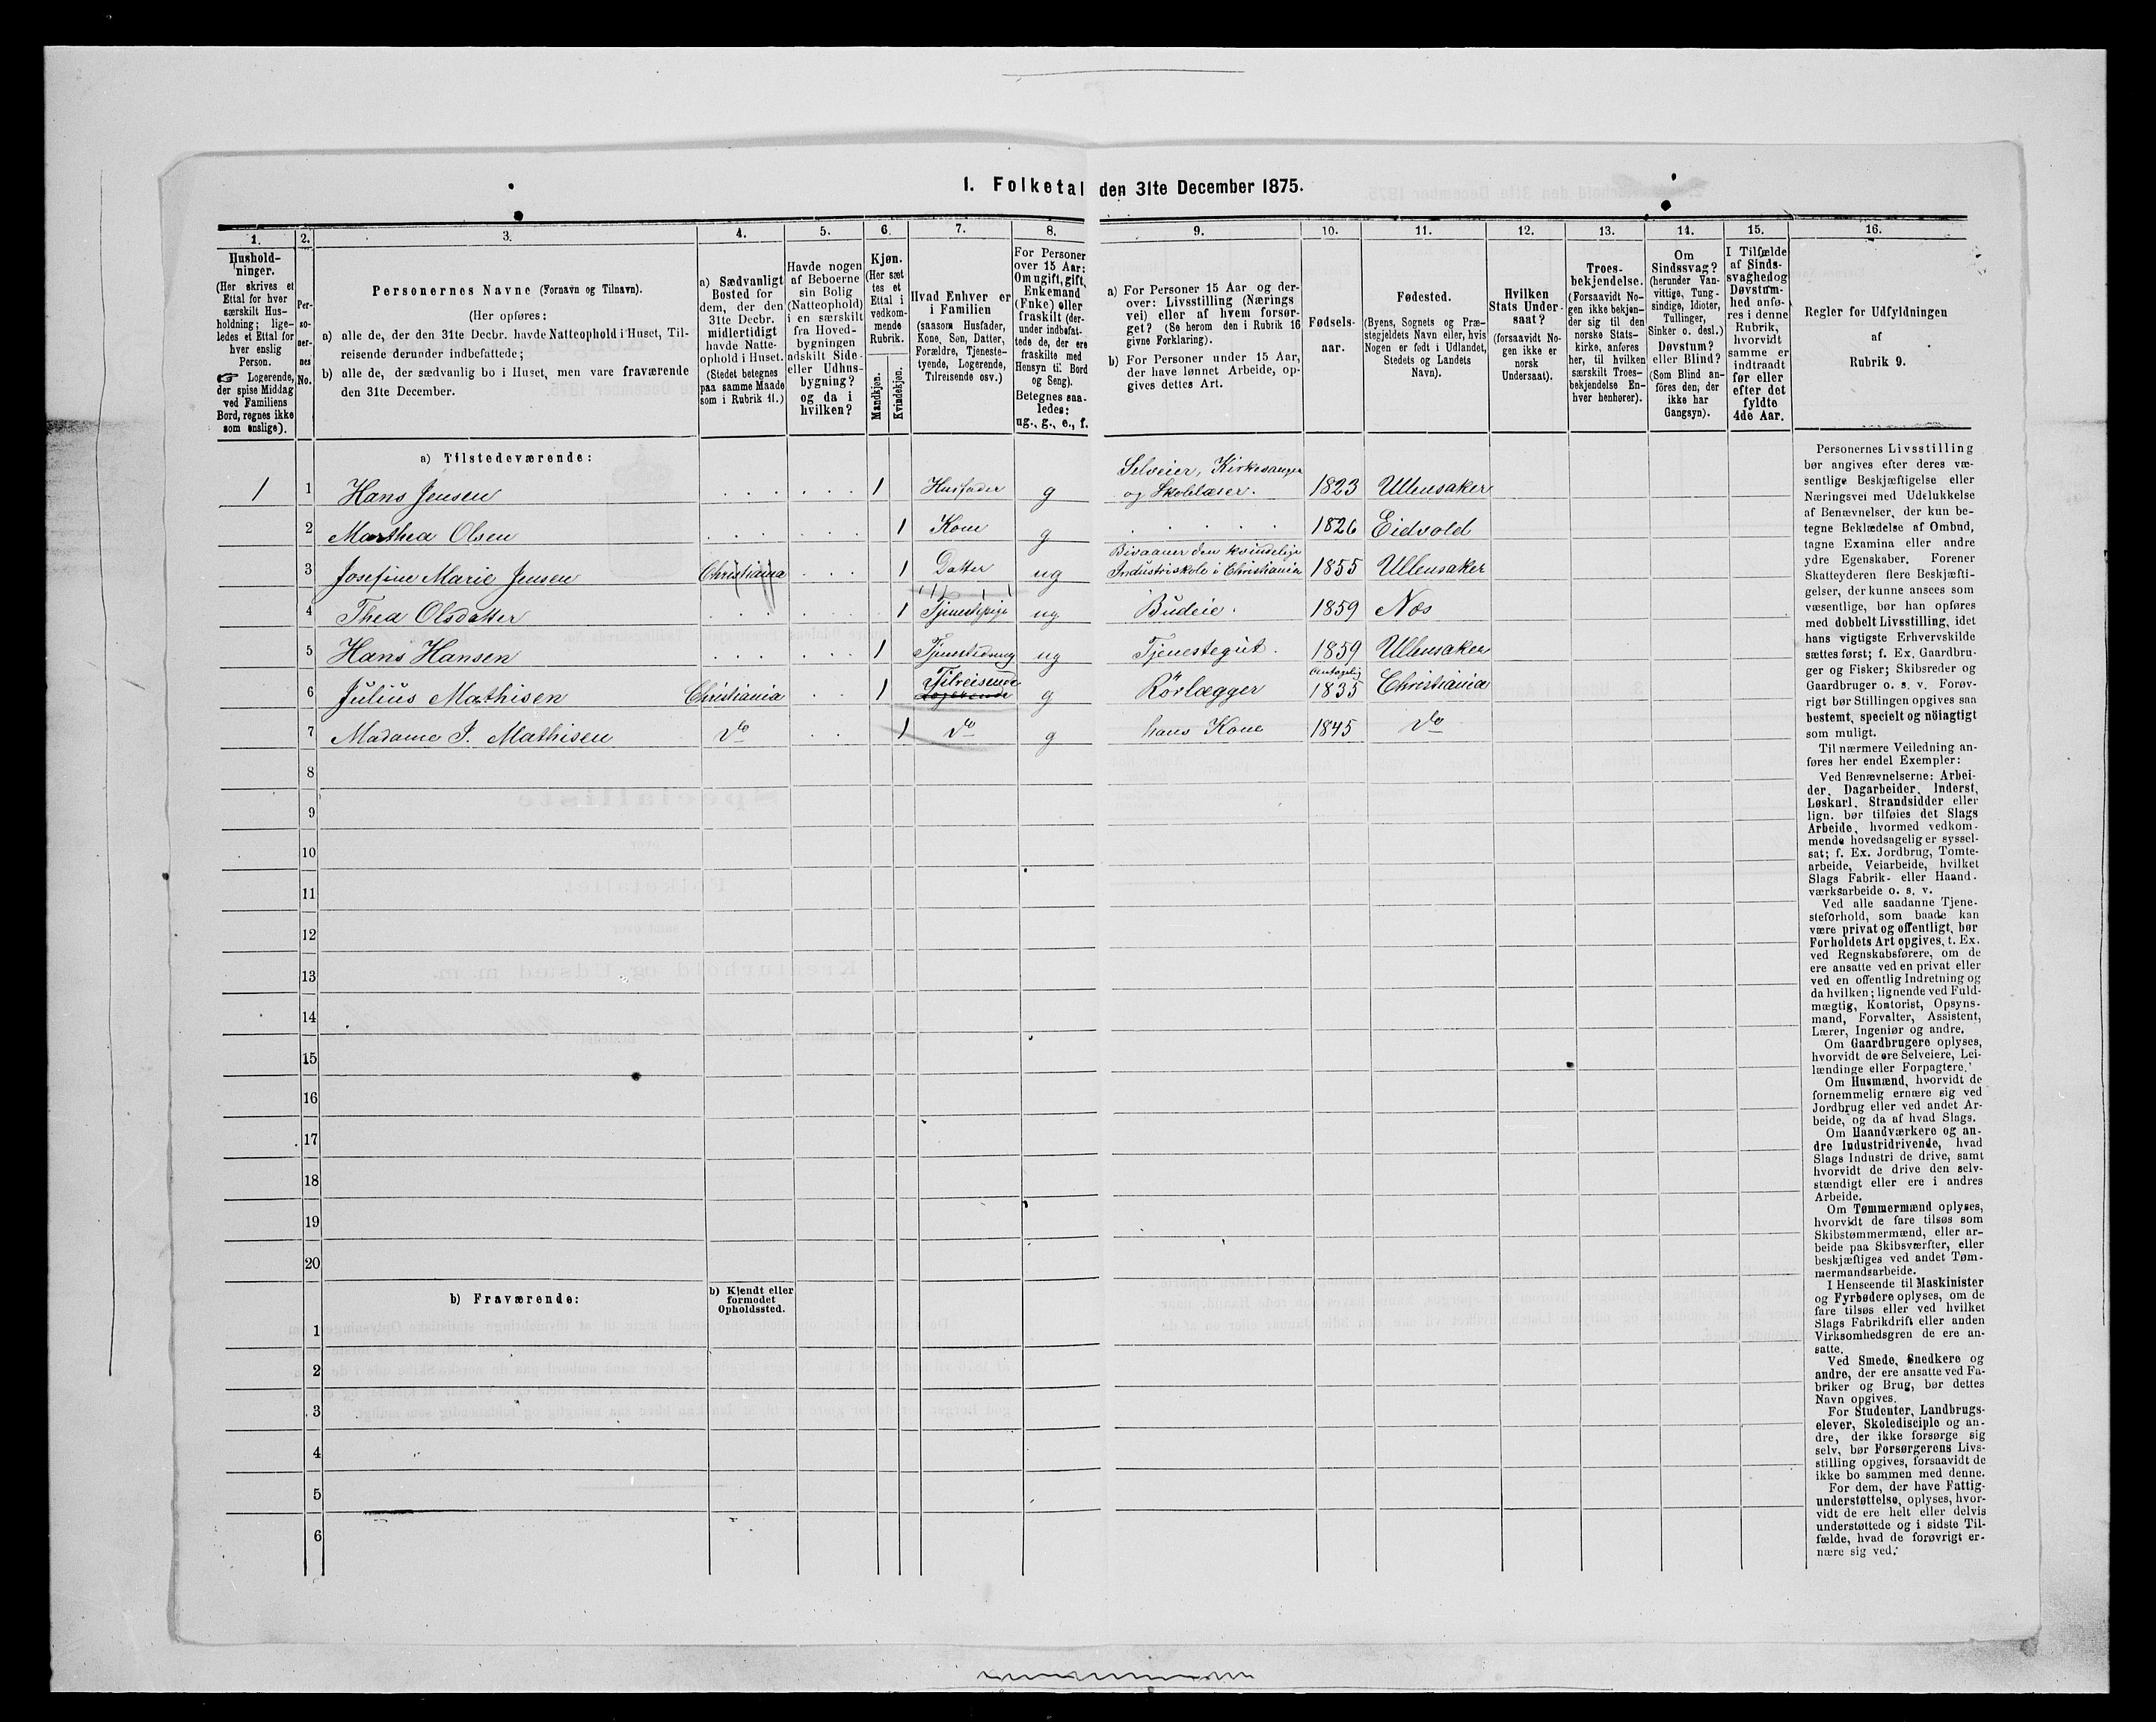 I. Folketal den 31te December 1875.
1.
Hushold-
ninger.
(Her skrives et
Ettal for hver
særskilt Hus-
holdning; lige-
ledes et Ettal for
hver enslig
Person.
☞ Logerende,
der spise Middag
ved Familiens
Bord, regnes ikke
som enslige).
2.
Per-
so-
ner-
nes
No.
3.
Personernes Navne (Fornavn og Tilnavn).
(Her opføres:
a) alle de, der den 31te Decbr. havde Natteophold i Huset, Til-
reisende derunder indbefattede;
b) alle de, der sædvanlig bo i Huset, men vare fraværende
den 31te December.
4.
a) Sædvanligt
Bosted for
dem, der den
31te Decbr.
midlertidigt
havde Natte-
ophold i Huset.
(Stedet betegnes
paa samme Maade
som i Rubrik 11.)
5.
Havde nogen
af Beboerne
sin Bolig
(Natteophold)
i en særskilt
fra Hoved-
bygningen
adskilt Side-
eller Udhus-
bygning?
og da i
hvilken?
6.
Kjøn.
(Her sæt
tes et
Ettal i
vedkom-
mende
Rubrik.
Mandkjøn.
Kvindekjøn.
7.
Hvad Enhver er
i Familien
(saasom Husfader,
Kone, Søn, Datter,
Forældre, Tjeneste-
tyende, Logerende,
Tilreisende osv.)
8.
For Personer
over 15 Aar:
Om ugift, gift,
Enkemand
(Enke) eller
fraskilt (der-
under indbefat-
tede de, der ere
fraskilte med
Hensyn til Bord
og Seng).
Betegnes saa-
ledes:
ug., g., e., f.
9.
a) For Personer 15 Aar og der-
over: Livsstilling (Nærings
vei) eller af hvem forsør-
get? (Se herom den i Rubrik 16
givne Forklaring).
b) For Personer under 15 Aar,
der have lønnet Arbeide, op-
gives dettes Art.
10.
Fødsels-
aar.
11.
Fødested.
(Byens, Sognets og Præ-
stegjeldets Navn eller, hvis
Nogen er født i Udlandet,
Stedets og Landets
Navn).
12.
Hvilken
Stats Under-
saat?
(forsaavidt No-
gen ikke er
norsk
Undersaat).
13.
Troes-
bekjendelse.
(Forsaavidt No-
gen ikke bekjen-
der sig til den
norske Stats-
kirke, anføres
her, til hvilken
særskilt Troes-
bekjendelse En-
hver henhører).
14.
Om
Sindssvag?
(herunder Van-
vittige, Tung-
sindige, Idioter,
Tullinger,
Sinker o. desl.)
Døvstum?
eller Blind?
(Som Blind an-
føres den, der
ikke har
Gangsyn).
15.
I Tilfælde
af Sinds-
svaghed og
Døvstum-
hed anfø-
res i denne
Rubrik,
hvorvidt
samme er
indtraadt
før eller
efter det
fyldte
4de Aar.
16.
Regler for Udfyldningen
af
Rubrik 9.
a) Tilstedeværende:
1 1 Hans Jensen 1 Husfader g Selveier, Kirkesanger og Skolelærer. 1823 Ullensaker
2 Marthea Olsen 1 Kone g 1826 Eidvold
3 Josefine Marie Jensen Christiania 1 Datter ug Bivaaner den kvindelige Industriskole i Christiania 1855 Ullensaker
4 Thea Olsdatter 1 Tjenestepige ug Budeie. 1859 Nes
5 Hans Hansen 1 Tjenestedreng ug Tjenestegut. 1859 Ullensaker
6 Julius Mathisen Christiania 1 Tilreisende Logerende g Rörlægger Antagelig 1835 Christiania
7 Madame J. Mathisen do 1 do g hans Kone 1845 do
8
9
10
11
12
13
14
15
16
17
18
19
20
b) Fraværende:
b) Kjendt eller
formodet
Opholdssted.
1
2
3
4
5
6
Personernes Livsstilling
bør angives efter deres væ-
sentlige Beskjæftigelse eller
Næringsvei med Udelukkelse
af Benævnelser, der kun be-
tegne Beklædelse af Ombud,
tagne Examina eller andre
ydre Egenskaber. Forener
Skatteyderen flere Beskjæfti-
gelser, der kunne ansees som
væsentlige, bør han opføres
med dobbelt Livsstilling, idet
hans vigtigste Erhvervskilde
sættes først; f. Ex. Gaardbru-
ger og Fisker; Skibsreder og
Gaardbruger o. s. v. Forøv-
rigt bør Stillingen opgives saa
bestemt, specielt og nöiagtigt
som muligt.
Til nærmere Veiledning an-
føres her endel Exempler:
Ved Benævnelserne: Arbei-
der, Dagarbeider, Inderst,
Løskarl, Strandsidder eller
lign. bør tilføies det Slags
Arbeide, hvormed vedkom-
mende hovedsagelig er syssel-
sat; f. Ex. Jordbrug, Tomte-
arbeide, Veiarbeide, hvilket
Slags Fabrik- eller Haand-
værksarbeide o. s. v.
Ved alle saadanne Tjene-
steforhold, som baade kan
være privat og offentligt, bør
Forholdets Art opgives, t. Ex.
ved Regnskabsførere, om de
ere ansatte ved en privat eller
ved en offentlig Indretning og
da hvilken; lignende ved Fuld-
mægtig, Kontorist, Opsyns-
mand, Forvalter, Assistent,
Lærer, Ingeniør og andre.
Om Gaardbrugere oplyses,
hvorvidt de ere Selveiere, Lei-
lændinge eller Forpagtere.
Om Husmænd, hvorvidt de
fornemmelig ernære sig ved
Jordbrug eller ved andet Ar-
beide, og da af hvad Slags.
Om Haandværkere og an-
dre Industridrivende, hvad
Slags Industri de drive, samt
hvorvidt de drive den selv-
stændigt eller ere i andres
Arbeide.
Om Tømmermænd oplyses,
hvorvidt de fare tilsøs som
Skibstømmermænd, eller ar-
beide paa Skibsværfter, eller
beskjæftiges ved andet Tøm-
mermandsarbeide.
I Henseende til Maskinister
og Fyrbødere oplyses, om de
fare tilsøs eller ved hvilket
Slags Fabrikdrift eller anden
Virksomhedsgren de ere an-
satte.
Ved Smede, Snedkere og
andre, der ere ansatte ved Fa-
briker og Brug, bør dettes
Navn opgives.
For Studenter, Landbrugs-
elever, Skoledisciple og an-
dre, der ikke forsørge sig
selv, bør Forsørgerens Livs-
stilling opgives, forsaavidt de
ikke bo sammen med denne.
For dem, der have Fattig-
understøttelse, oplyses, hvor-
vidt de ere helt eller delvis
understøttede og i sidste Til-
fælde, hvad de forøvrigt er-
nære sig ved.